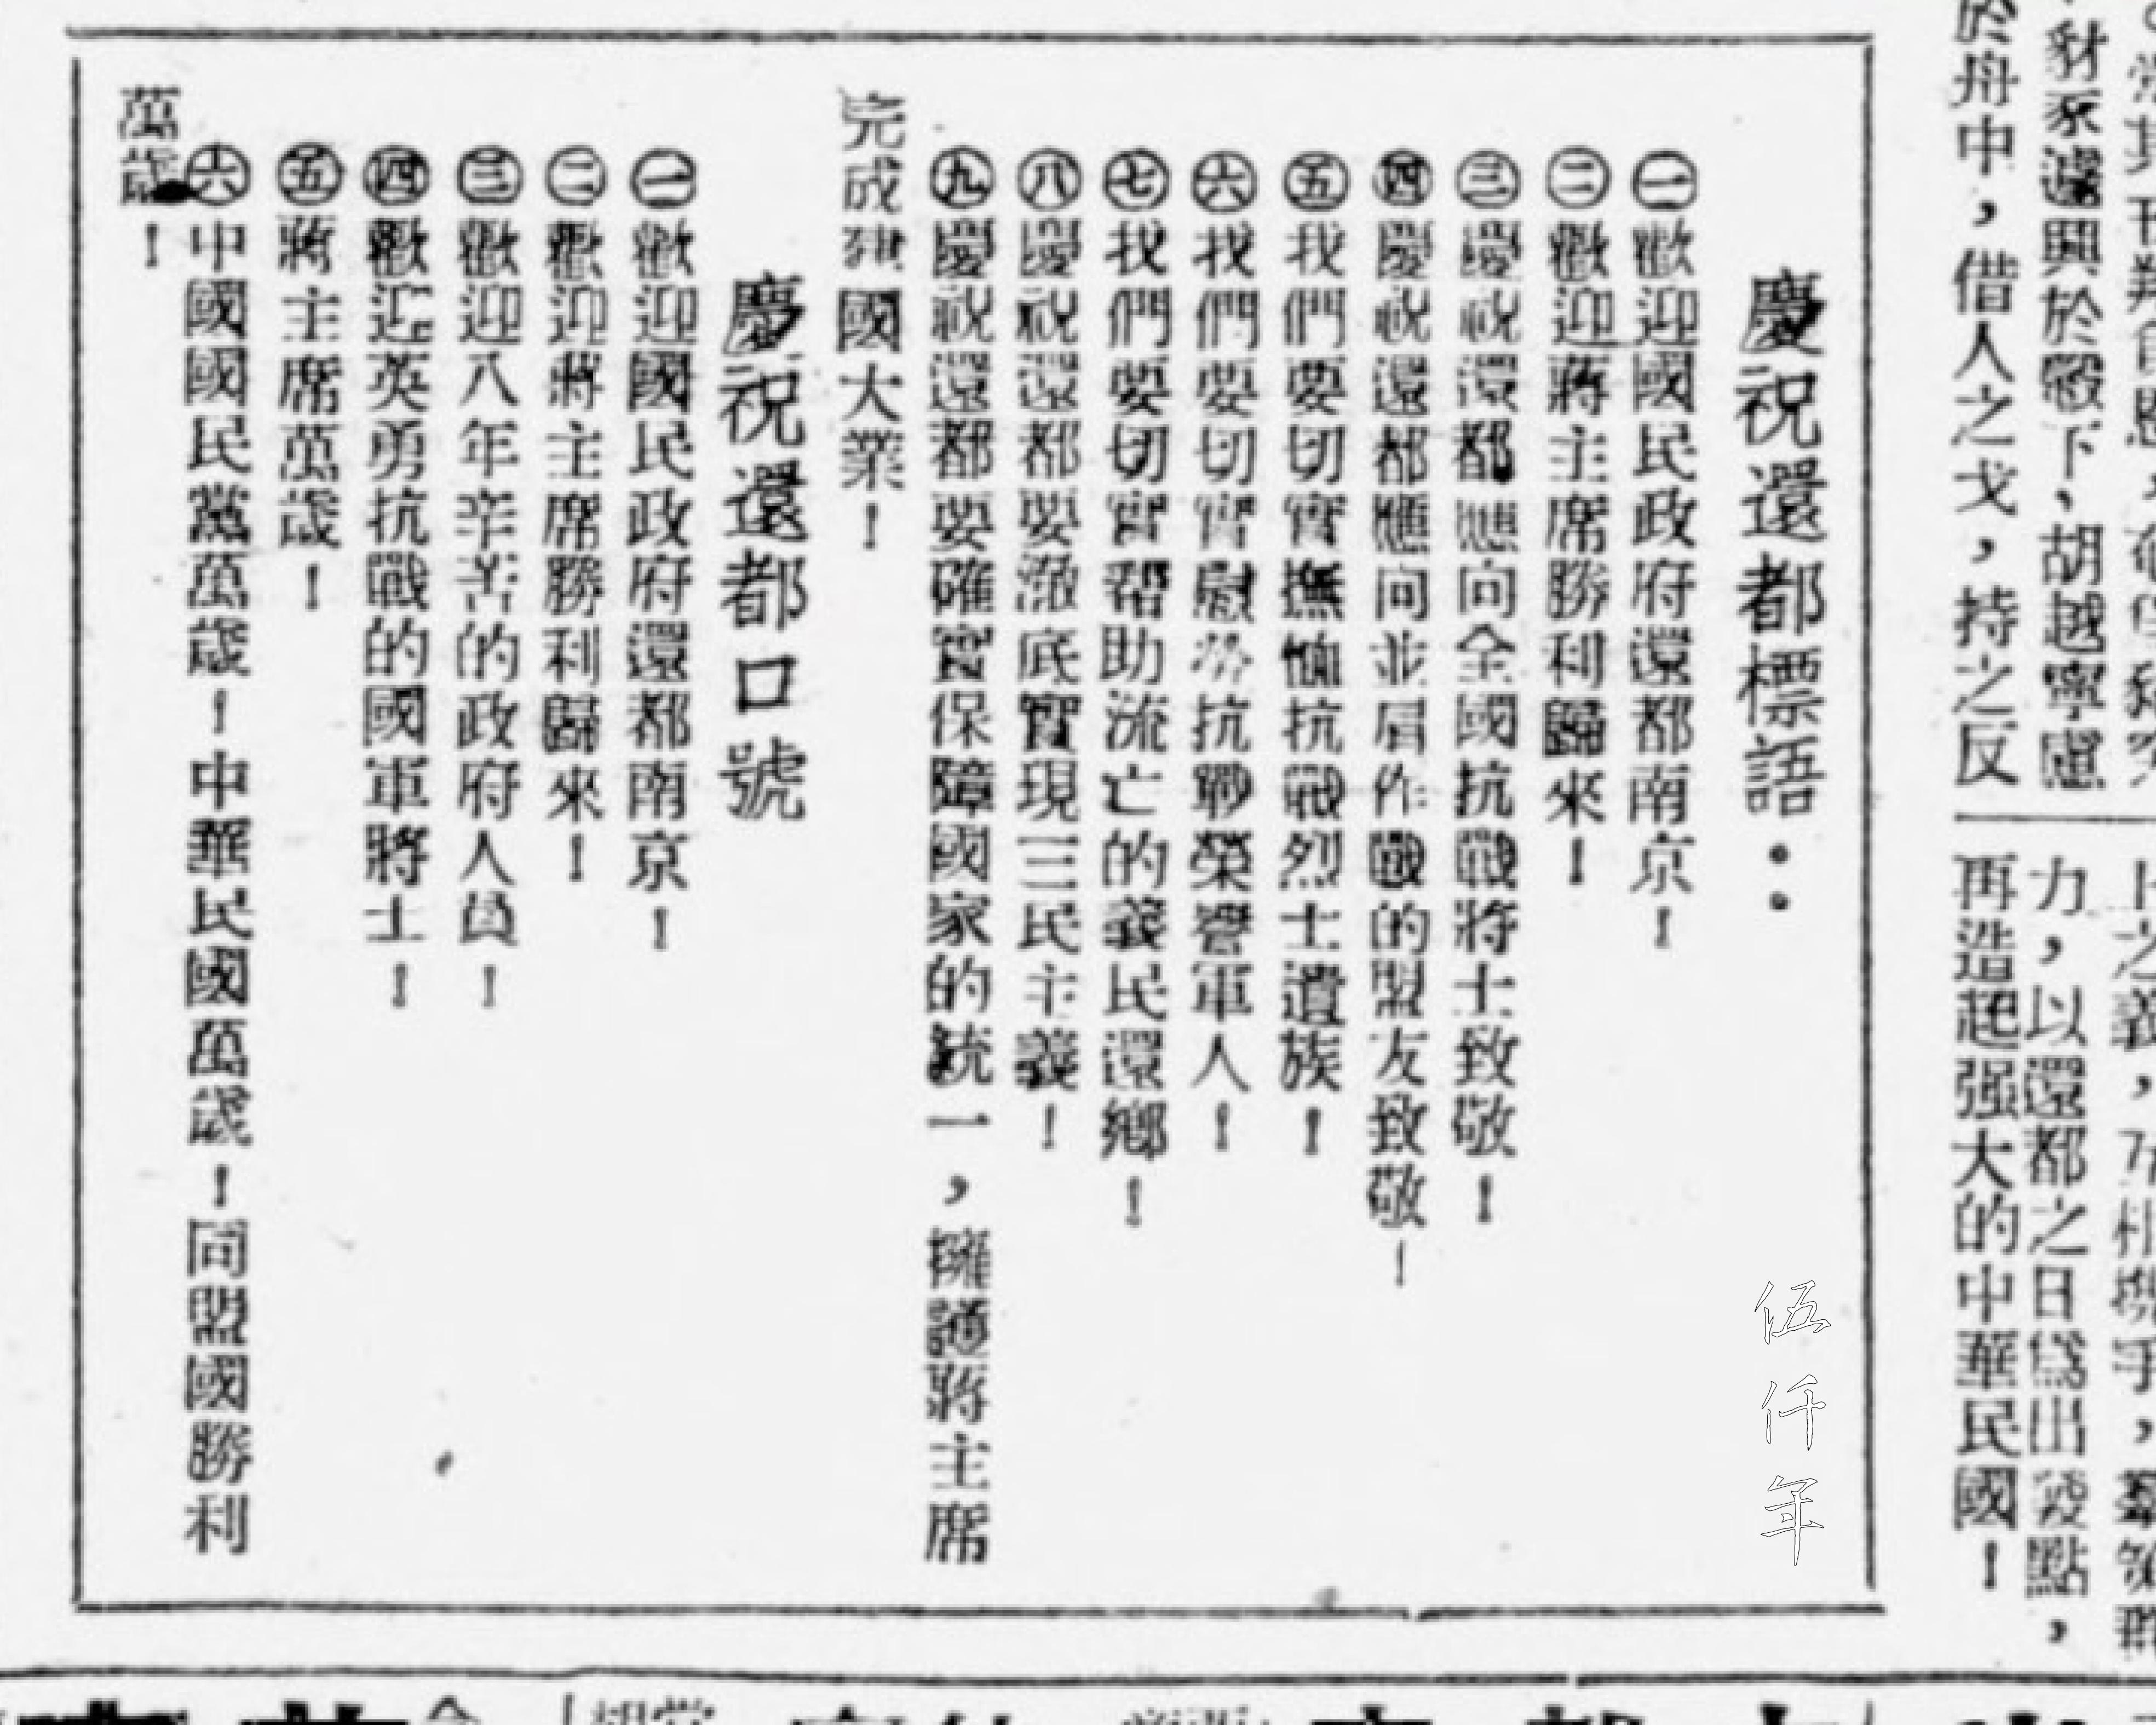 於舟中，借人之戈，持之反
再造起强大的中華民國！
力，以還都之日爲出發點，
慶祝還都標語：
㊀歡迎國民政府還都南京！
㊁歡迎蔣主席勝利歸來！
㊂慶祝還都應向全國抗戰將士致敬！
㊃慶祝還都應向並肩作戰的盟友致敬！
㊄我們要切實撫恤抗戰烈士遺族！
㊅我們要切實慰勞抗戰榮譽軍人！
㊆我們要切實帮助流亡的義民還鄉！
㊇慶祝還都要澈底實現三民主義！
㊈慶祝還都要確實保障國家的統一，擁護蔣主席
完成建國大業！
慶祝還都口號
㊀歡迎國民政府還都南京！
㊁歡迎蔣主席勝利歸來！
㊂歡迎八年辛苦的政府人員！
㊃歡迎英勇抗戰的國軍將士！
㊄蔣主席萬歲！
㊅中國國民黨萬歲！中華民國萬歲！同盟國勝利
萬歲！
伍仟年